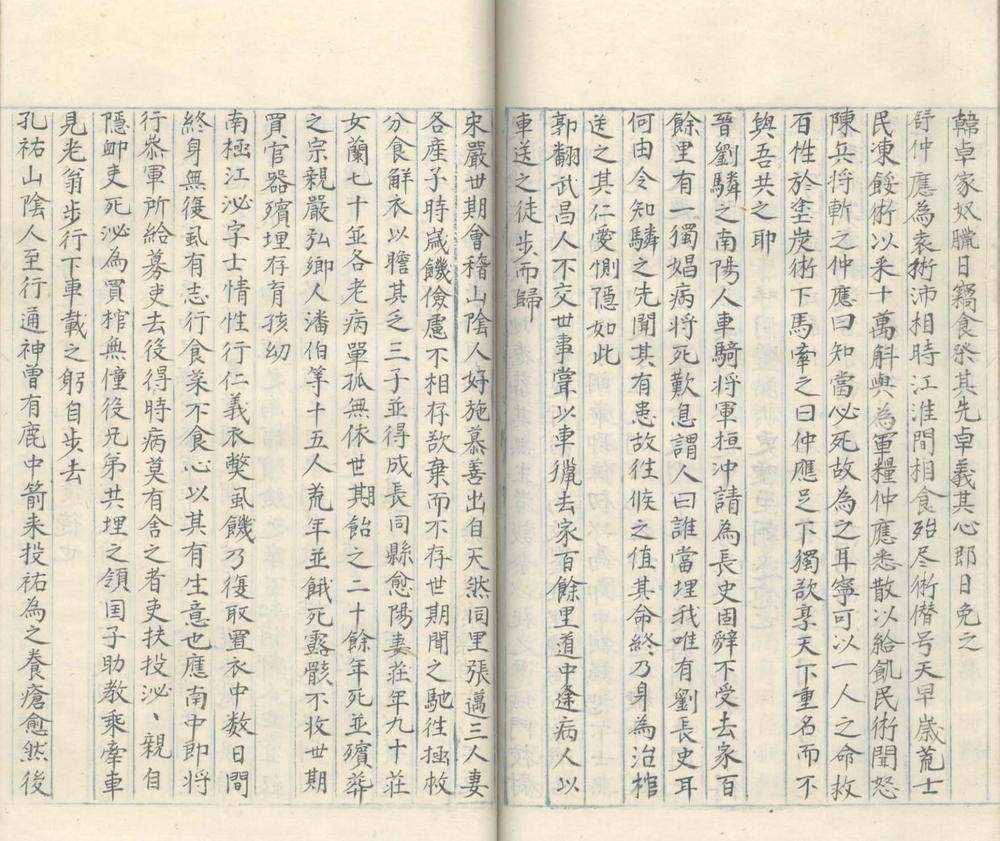 韓卓家奴臘日竊食祭其先卓義其心即日免之
舒仲應為袁術沛相時江淮間相食殆尽術僭号天旱歲荒士
民凍餒術以米十萬斛與為軍糧仲應悉散以給飢民術聞怒
陳兵将斬之仲應曰知當必死故為之耳寧可以一人之命救
百性於塗炭術下馬牽之曰仲應足下獨欲享天下重名而不
與吾共之耶
晉劉驎之南陽人車騎将軍桓冲請為長史固辤不受去家百
餘里有一獨媪病将死歎息謂人曰誰當埋我唯有劉長史耳
何由令知驎之先聞其有患故徃候之值其命終乃身為治棺
送之其仁愛惻隱如此
郭翻武昌人不交世事常以車獵去家百餘里道中逢病人以
車送之徒步而歸
宋嚴世期會稽山陰人好施慕善出自天然同里張邁三人妻
各産子時歲饑儉慮不相存欲棄而不存世期聞之馳徃拯救
分食解衣以贍其乏三子並得成長同縣愈陽妻莊年九十莊
女蘭七十並各老病單孤無依世期飴之二十餘年死並殯葬
之宗親嚴弘鄉人潘伯等十五人荒年並餓死露骸不收世期
買官器殯埋存育孩幼
南極江泌字士情性行仁義衣獘虱饑乃復取置衣中数日間
終身無復虱有志行食菜不食心以其有生意也應南中郎将
行叅軍所給募吏去後得時病莫有舍之者吏扶投泌、親自
隱卹吏死泌為買棺無僮役兄弟共埋之領囯子助教乘牽車
見老翁步行下車載之躬自步去
孔祐山陰人至行通神曽有鹿中箭来投祐為之養瘡愈然後